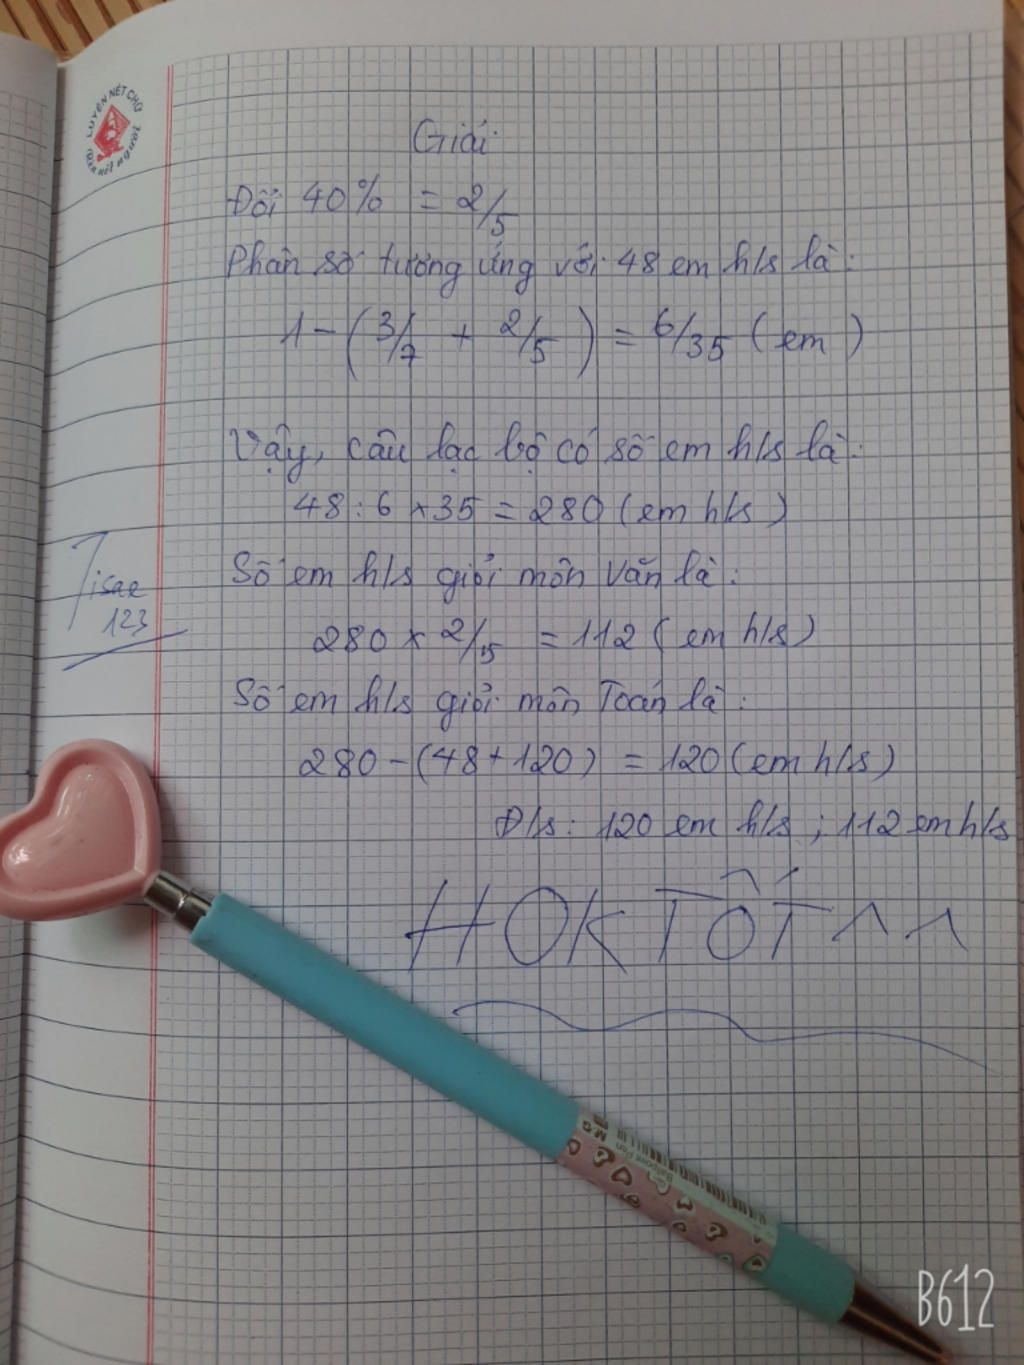 LUYỆN NÉT CHỮ
Rèn nết người
Giải
Đổi 40% = 2/5
Phân số tương ứng với 48 em h/s là:
1 - (3/7 + 2/5) = 6/35 (em)
Vậy, câu lạc bộ có số em h/s là:
48 : 6 × 35 = 280 (em h/s)
Số em h/s giỏi môn văn là:
280 × 2/5 = 112 (em h/s)
Số em h/s giỏi môn Toán là:
280 - (48 + 120) = 120 (em h/s)
Đ/s: 120 em h/s ; 112 em h/s
Tisae
123
HOK TỐT ^ ^
M&G
Ballpoint Pen
B612